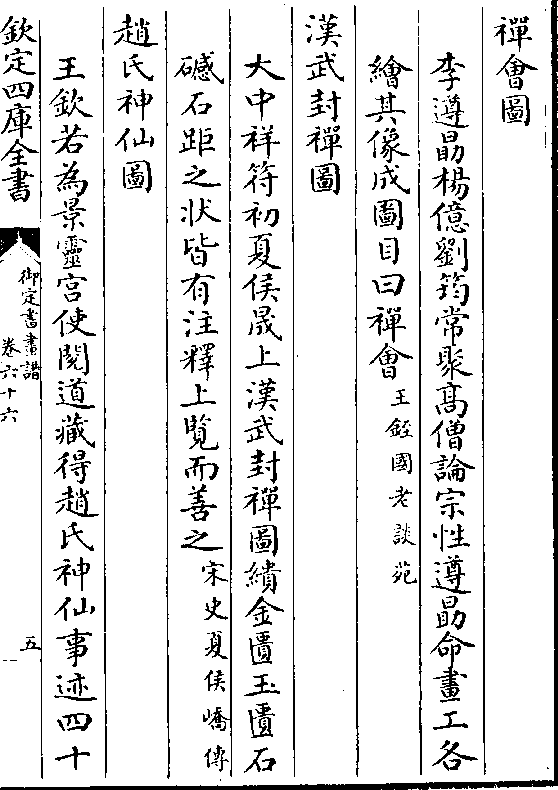 禪會圖
李遵勗楊億劉筠常聚高僧論宗性遵勗命畫工各
繪其像成圖目曰禪會王銍國老談苑
漢武封禪圖
大中祥符初夏侯晟上漢武封禪圖繢金匱玉匱石
礈石距之狀皆有注釋上覽而善之宋史夏侯嶠傳
趙氏神仙圖
王欽若為景靈宮使閱道藏得趙氏神仙事迹四十
欽定四庫全書
御定書畫譜
卷六十六
五